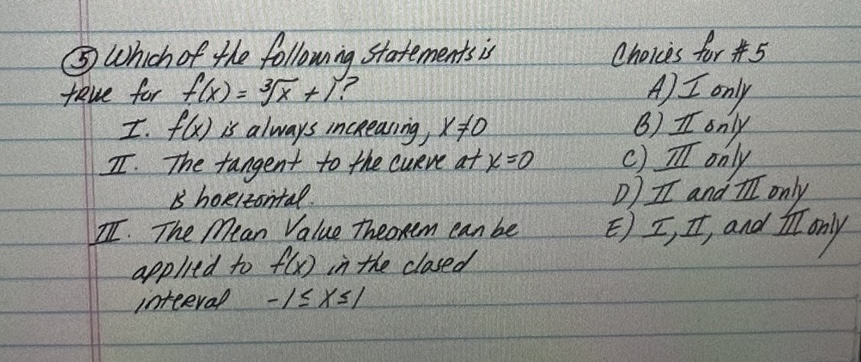 ⑤ Which of the following statements is
true for f(x) = ∛x + 1?
I. f(x) is always increasing, x≠0
II. The tangent to the curve at x=0
is horizontal.
III. The Mean Value Theorem can be
applied to f(x) in the closed
interval -1≤x≤1
Choices for #5
A) I only
B) II only
C) III only
D) II and III only
E) I, II, and III only